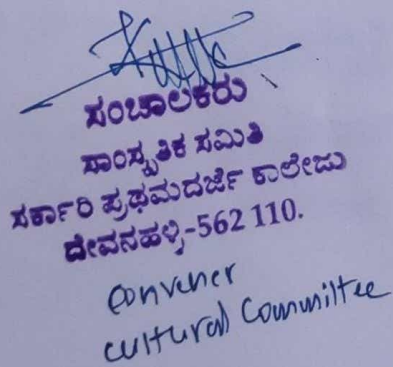 ಸಂಚಾಲಕರು
ಸಾಂಸ್ಕೃತಿಕ ಸಮಿತಿ
ಸರ್ಕಾರಿ ಪ್ರಥಮದರ್ಜೆ ಕಾಲೇಜು
ದೇವನಹಳ್ಳಿ-562 110.
convener
cultural Committee